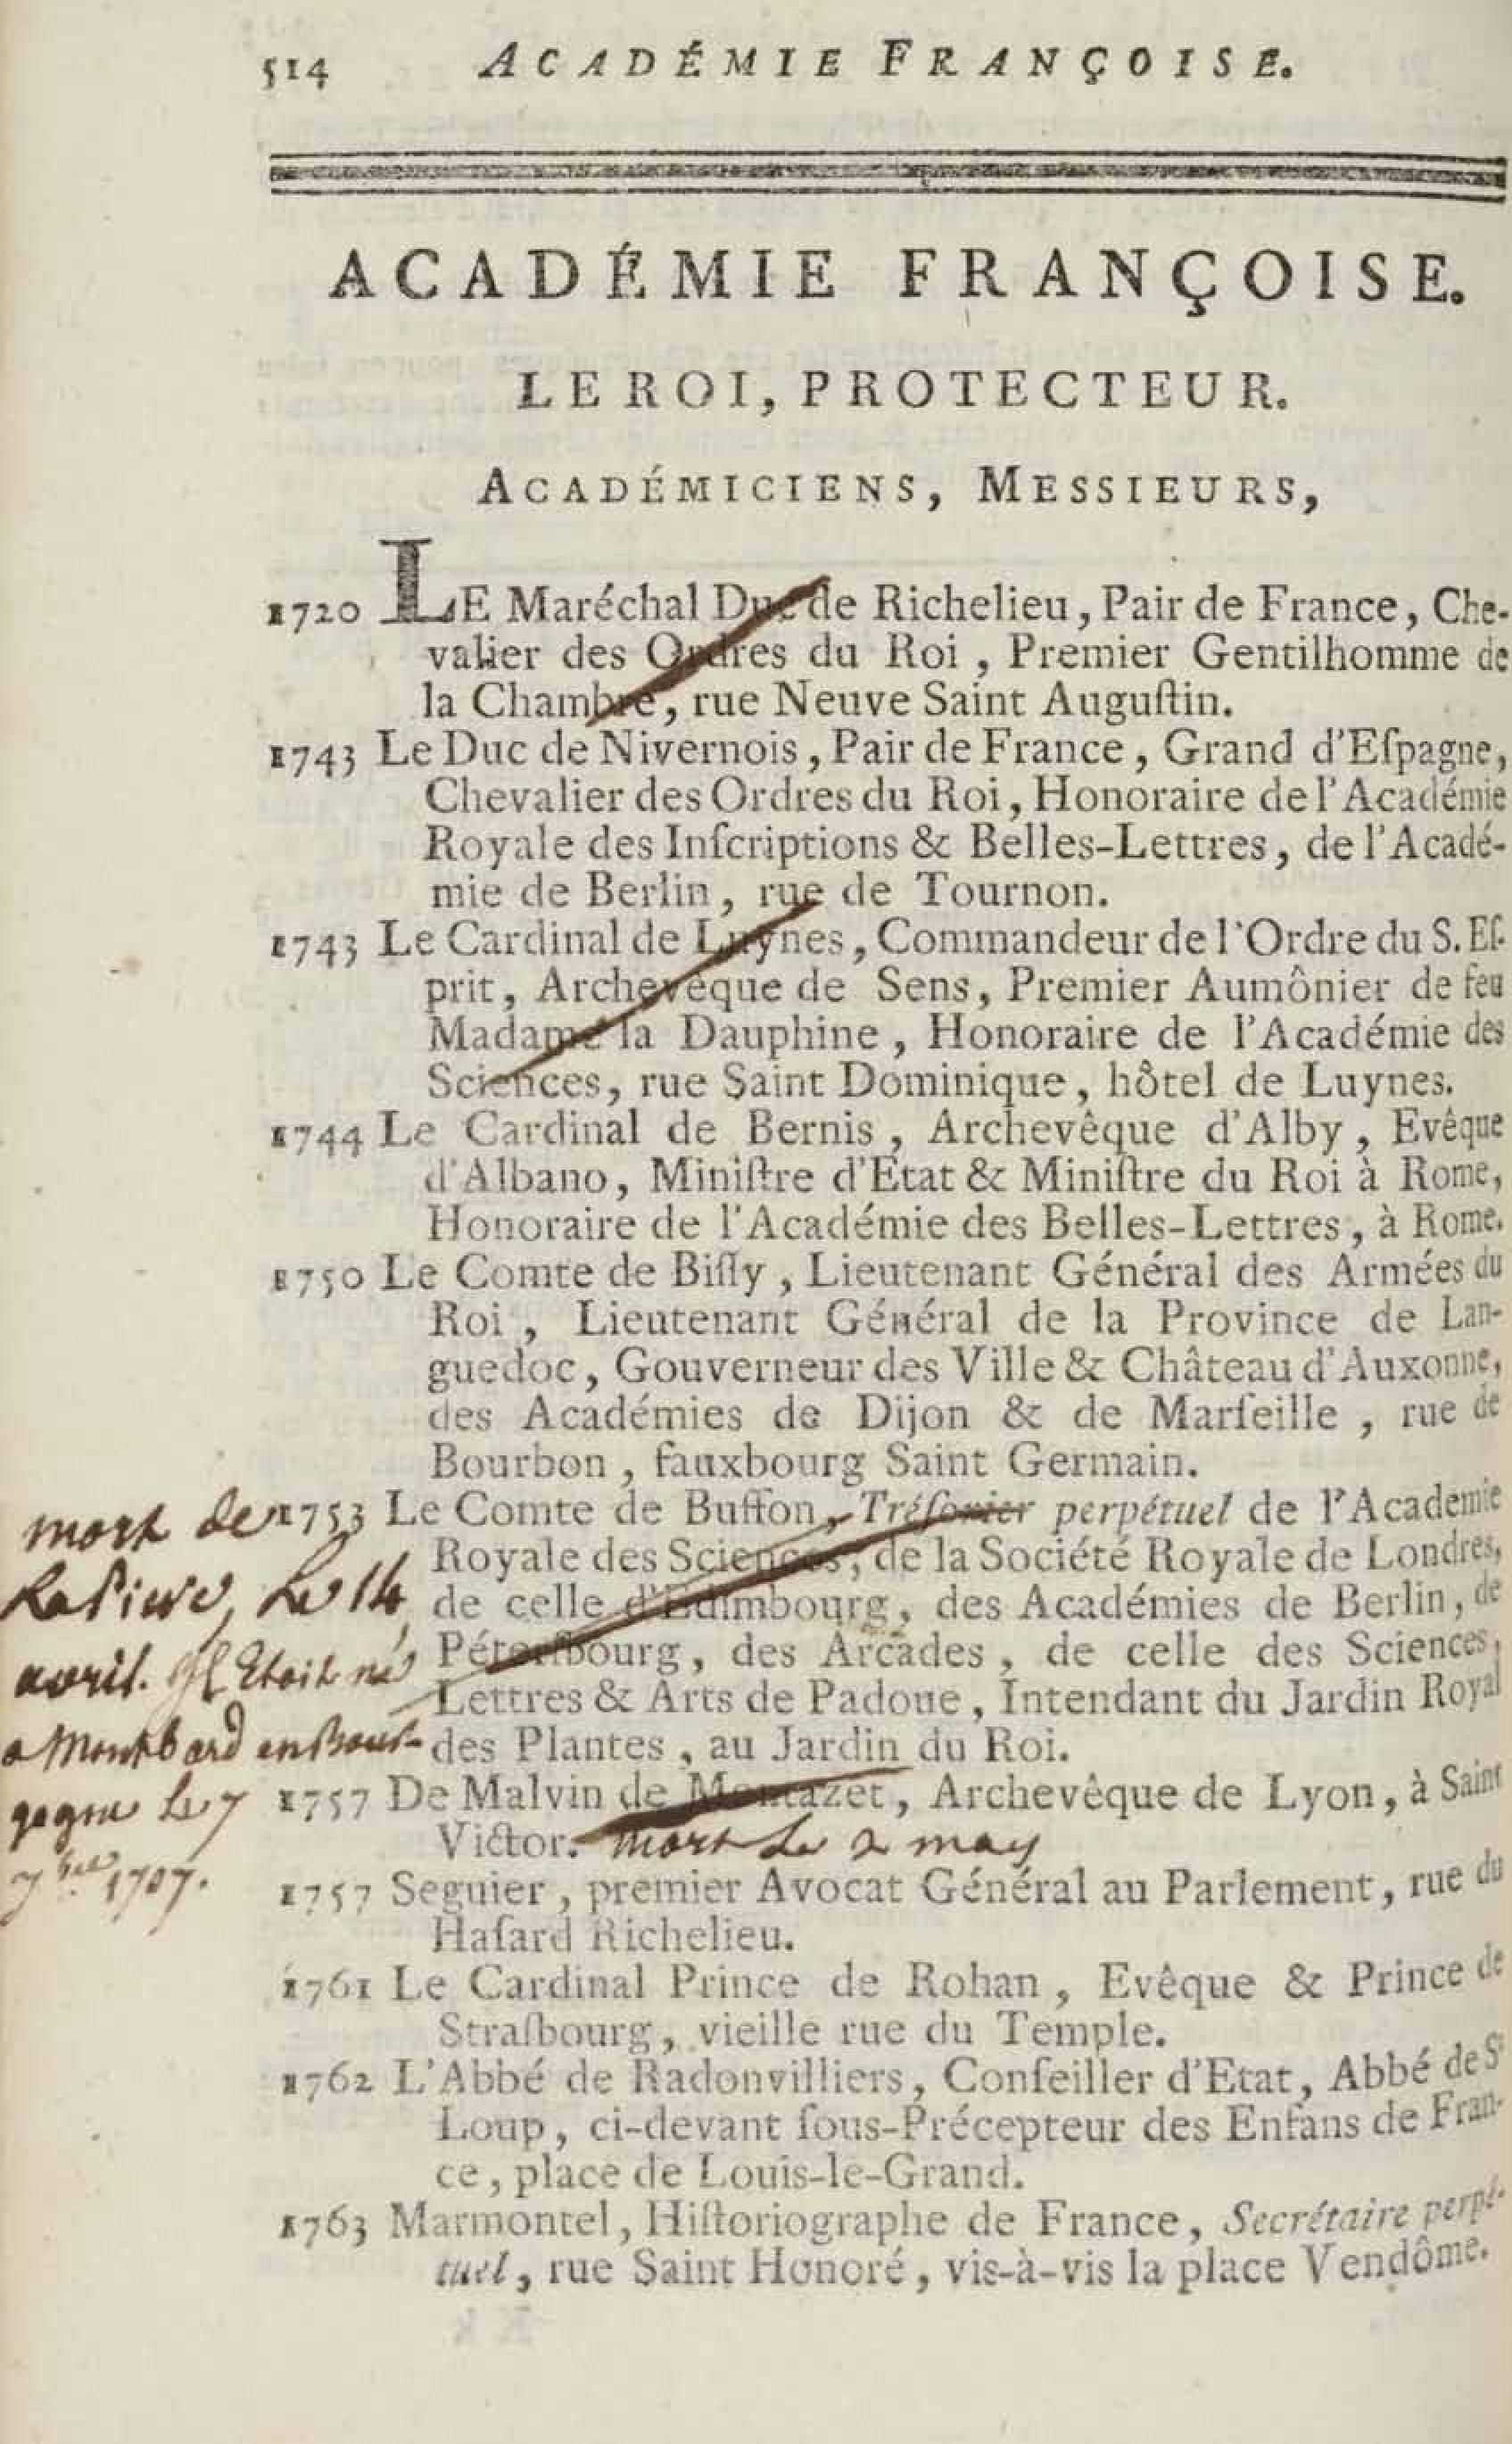 514 ACADÉMIE FRANÇOISE.
ACADÉMIE FRANÇOISE.
LE ROI, PROTECTEUR.
ACADÉMICIENS, MESSIEURS,
1720 LE Maréchal Duc de Richelieu, Pair de France, Che-
valier des Ordres du Roi, Premier Gentilhomme de
la Chambre, rue Neuve Saint Auguſtin.
1743 Le Duc de Nivernois, Pair de France, Grand d'Eſpagne,
Chevalier des Ordres du Roi, Honoraire de l'Académie
Royale des Inſcriptions & Belles-Lettres, de l'Acadé-
mie de Berlin, rue de Tournon.
1743 Le Cardinal de Luynes, Commandeur de l'Ordre du S. Eſ-
prit, Archevêque de Sens, Premier Aumônier de feu
Madame la Dauphine, Honoraire de l'Académie des
Sciences, rue Saint Dominique, hôtel de Luynes.
1744 Le Cardinal de Bernis, Archevêque d'Alby, Evêque
d'Albano, Miniſtre d'Etat & Miniſtre du Roi à Rome,
Honoraire de l'Académie des Belles-Lettres, à Rome.
1750 Le Comte de Biſſy, Lieutenant Général des Armées du
Roi, Lieutenant Général de la Province de Lan-
guedoc, Gouverneur des Ville & Château d'Auxonne,
des Académies de Dijon & de Marſeille, rue de
Bourbon, fauxbourg Saint Germain.
1753 Le Comte de Buffon, Tréſorier perpétuel de l'Academie
Royale des Sciences, de la Société Royale de Londres,
de celle d'Edimbourg, des Académies de Berlin, de
Péterſbourg, des Arcades, de celle des Sciences,
Lettres & Arts de Padoue, Intendant du Jardin Royal
des Plantes, au Jardin du Roi.
mort de
La Pierre, Le 16
avril. Il Etoit né
a Montbard en Bour-
gogne Le 7
7bre 1707.
1757 De Malvin de Montazet, Archevêque de Lyon, à Saint
Victor. mort Le 2 may
1757 Seguier, premier Avocat Général au Parlement, rue du
Haſard Richelieu.
1761 Le Cardinal Prince de Rohan, Evêque & Prince de
Straſbourg, vieille rue du Temple.
1762 L'Abbé de Radonvilliers, Conſeiller d'Etat, Abbé de S
Loup, ci-devant ſous-Précepteur des Enfans de Fran-
ce, place de Louis-le-Grand.
1763 Marmontel, Hiſtoriographe de France, Secrétaire perpé-
tuel, rue Saint Honoré, vis-à-vis la place Vendôme.